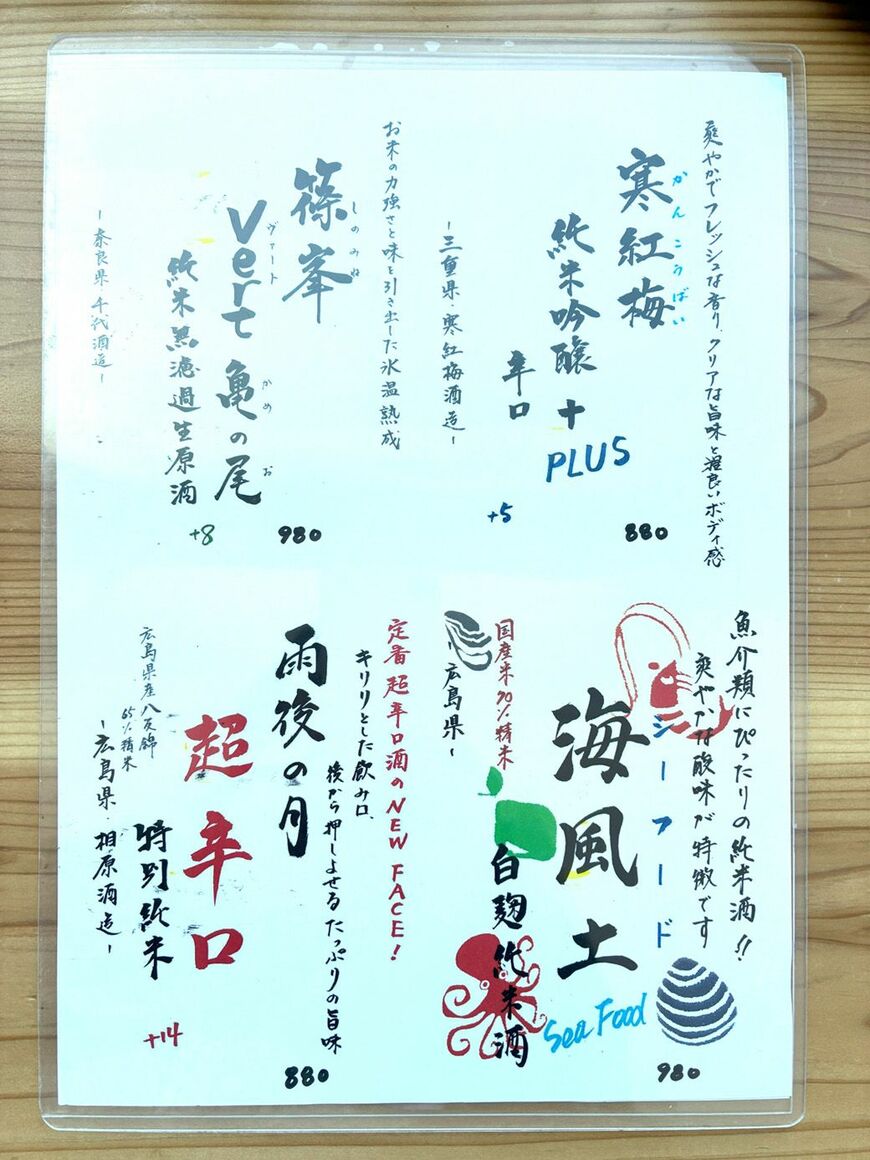 爽やかでフレッシュな香り、クリアな旨味と程良いボディ感
寒紅梅
かんこうばい
純米吟醸+
PLUS
辛口
+5
880
-三重県・寒紅梅酒造-
お米の力強さと味を引き出した氷温熟成
篠峯
しのみね
Vert 亀の尾
ヴァート
かめ お
純米無濾過生原酒
+8
980
-奈良県 千代酒造-
魚介類にぴったりの純米酒!!
爽やかな酸味が特徴です
シーフード
海風土
Sea Food
白麹純米酒
国産米70%精米
-広島県-
980
定番超辛口酒のNEW FACE!
キリリとした飲み口、
後から押しよせるたっぷりの旨味
雨後の月
超辛口
特別純米
+14
広島県産八反錦
65%精米
-広島県・相原酒造-
880